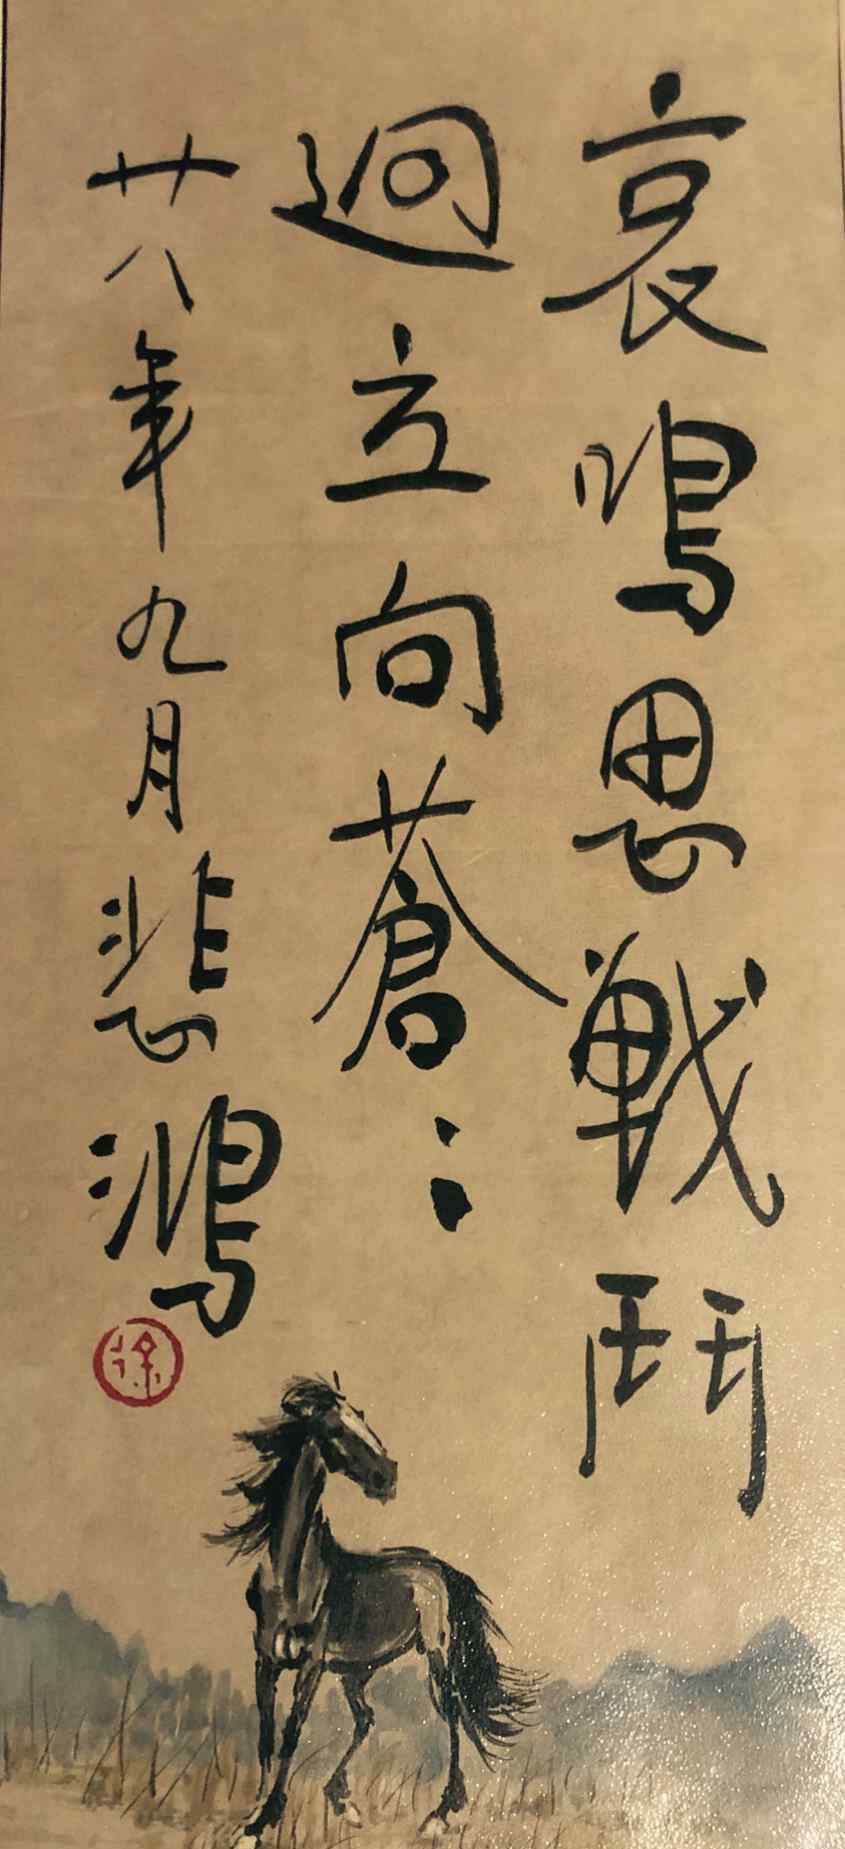 哀鳴思戰鬥
迥立向蒼〻
廿八年九月悲鴻
徐